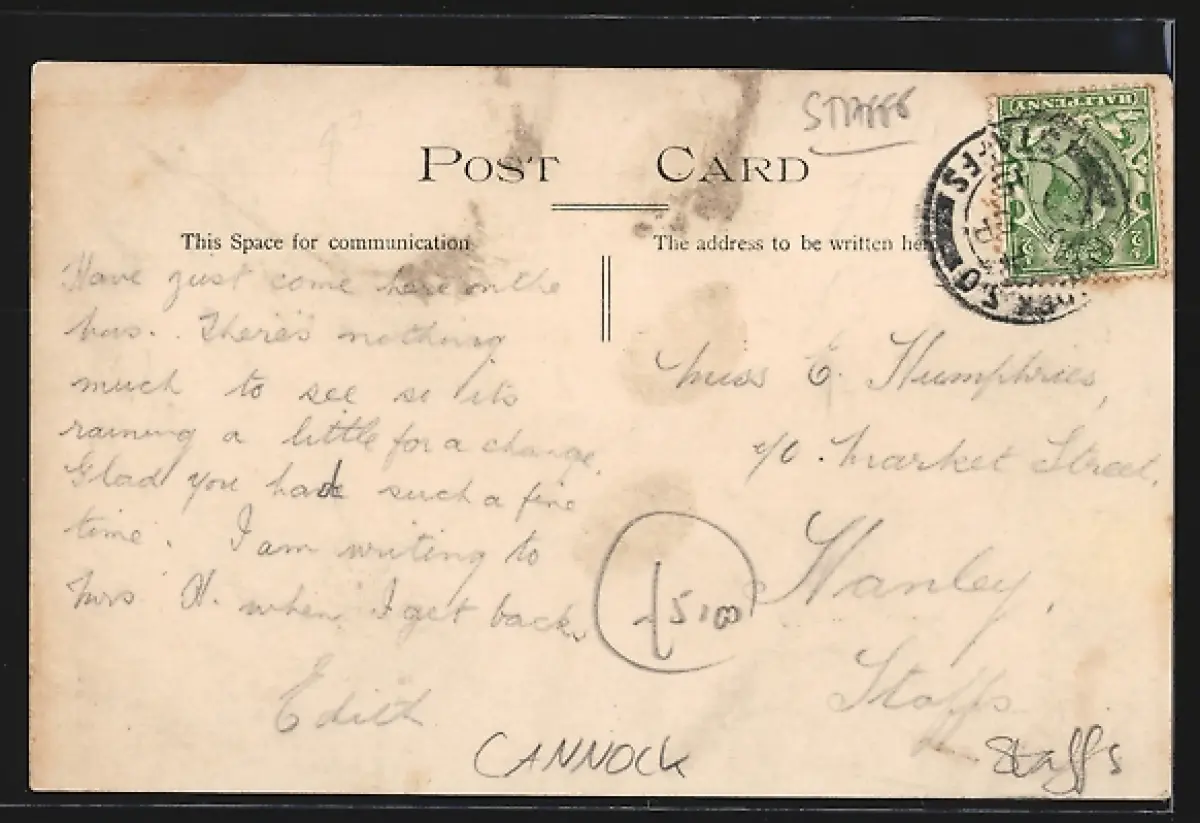 STAFFS
POST CARD
This Space for communication
The address to be written her
HALFPENNY
STAFFS
S.O
Have just come here on the
bus. There's nothing
much to see so its
raining a little for a change.
Glad you had such a fine
time. I am writing to
Mrs H. when I get back.
Edith
Miss E. Humphries,
c/o Market Street,
Hanley,
Staffs
£5.00
CANNOCK
Staffs